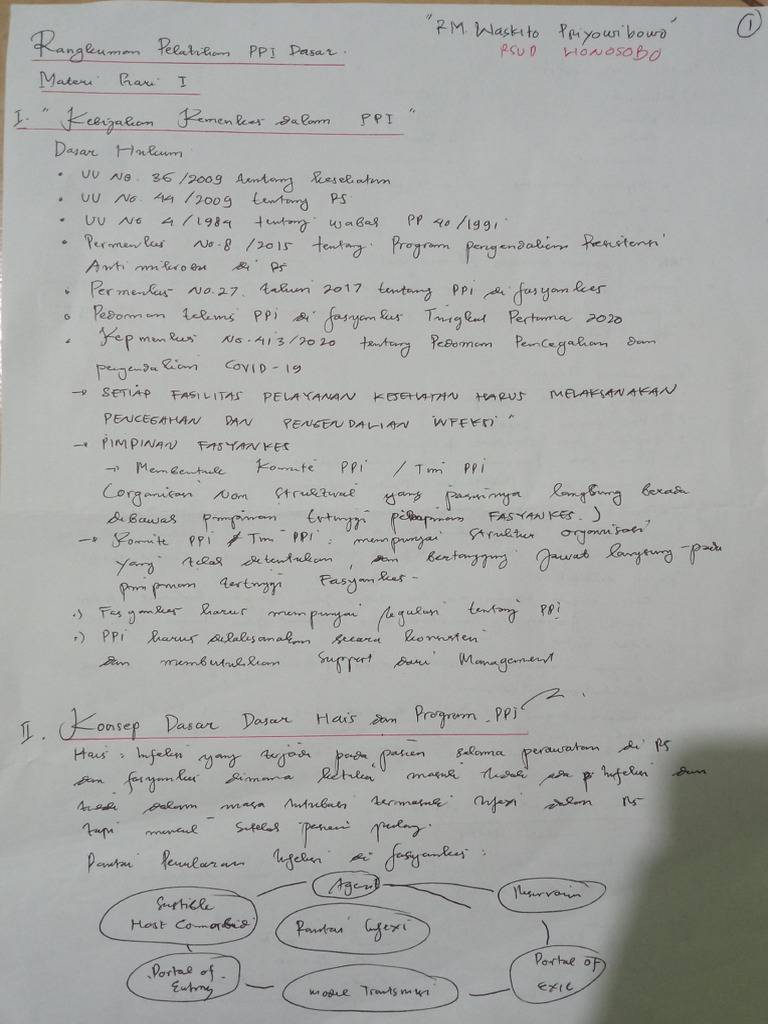 "RM. Waskito Priyowibowo" 1
RSUD WONOSOBO
Rangkuman Pelatihan PPI Dasar.
Materi Hari I
I. "Kebijakan Kemenkes dalam PPI"
Dasar Hukum
• UU No. 36/2009 tentang kesehatan
• UU No. 44/2009 tentang RS
• UU No 4/1984 tentang wabah PP 40/1991
• Permenkes No. 8/2015 tentang Program pengendalian Resistensi
Anti mikroba di RS
• Permenkes No. 27. tahun 2017 tentang PPI di fasyankes
• Pedoman teknis PPI di fasyankes Tingkat Pertama 2020
• Kepmenkes No. 413/2020 tentang Pedoman Pencegahan dan
pengendalian COVID-19
→ SETIAP FASILITAS PELAYANAN KESEHATAN HARUS MELAKSANAKAN
PENCEGAHAN DAN PENGENDALIAN INFEKSI"
→ PIMPINAN FASYANKES
→ Membentuk Komite PPI / Tim PPI
(organisasi Non Struktural yang langsung berada
dibawah pimpinan tertinggi FASYANKES.)
→ Komite PPI / Tim PPI : mempunyai struktur organisasi
yang telah ditentukan, dan bertanggung jawab langsung pada
pimpinan tertinggi Fasyankes-
.) Fasyankes harus mempunyai regulasi tentang PPI
.) PPI harus dilaksanakan secara konsisten
dan membutuhkan Support dari Management
II. Konsep Dasar Dasar Hais dan Program PPI
Hais : Infeksi yang terjadi pada pasien selama perawatan di RS
dan fasyankes dimana ketika masuk tidak ada infeksi dan
tidak dalam masa inkubasi termasuk infeksi dalam RS
tapi muncul setelah pasien pulang.
Rantai Penularan Infeksi di fasyankes :
Agent
Reservoir
Sustible
Host Comorbid
Rantai Infexi
Portal of
Entry
Mode Transmisi
Portal OF
EXIT